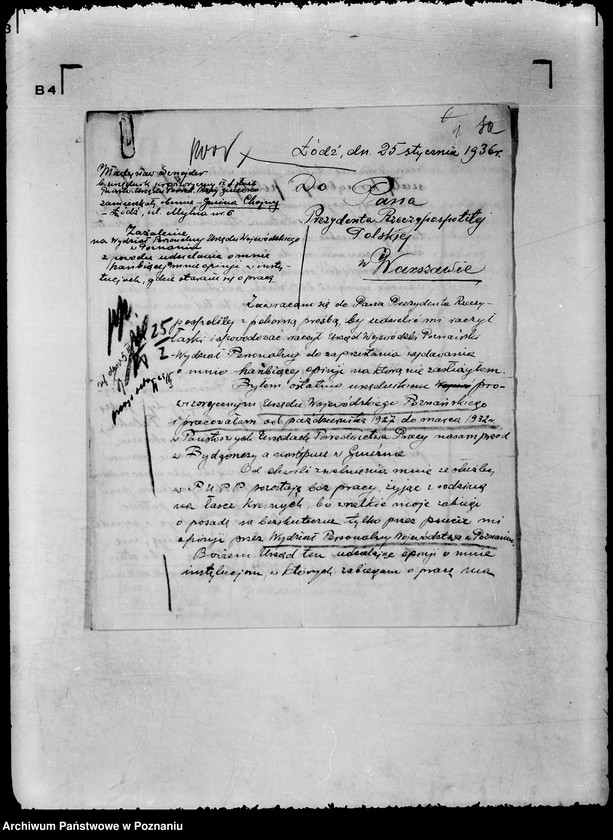 B4
1 30
Łódź, dn. 25 stycznia 1936r.
Władysław Sznajder
b. urzędnik prowizoryczny
zamieszkały obecnie – Gmina Chojny
– Łódź, ul. Mylna nr. 6
Zażalenie
na Wydział Personalny Urzędu Wojewódzkiego
w Poznaniu
z powodu udzielania o mnie
hańbiącej mnie opinji w insty-
tucjach, gdzie staram się o pracę
Do Pana
Prezydenta Rzeczypospolitej
Polskiej
w Warszawie
Zwracam się do Pana Prezydenta Rzeczy-
pospolitej z pokorną prośbą, by udzielić mi raczył
łaski i spowodować raczył Urząd Wojewódzki Poznański
Wydział Personalny do zaprzestania wydawania
o mnie hańbiącej opinji na którą nie zasłużyłem.
25
2
Byłem ostatnio urzędnikiem pro-
wizorycznym Urzędu Wojewódzkiego Poznańskiego
i pracowałem od października 1927 do marca 1932r.
w Państwowych Urzędach Pośrednictwa Pracy naprzód
w Bydgoszczy a następnie w Gnieźnie
Od chwili zwolnienia mnie ze służby
w P.U.P.P. pozostaję bez pracy, żyjąc z rodziną
na łasce krewnych, bo wszelkie moje zabiegi
o posadę są bezskuteczne, tylko przez psucie mi
opinji przez Wydział Personalny Województwa w Poznaniu.
Bowiem Urząd ten udzielając opinji o mnie
instytucjom, w których zabiegam o pracę ma
Archiwum Państwowe w Poznaniu